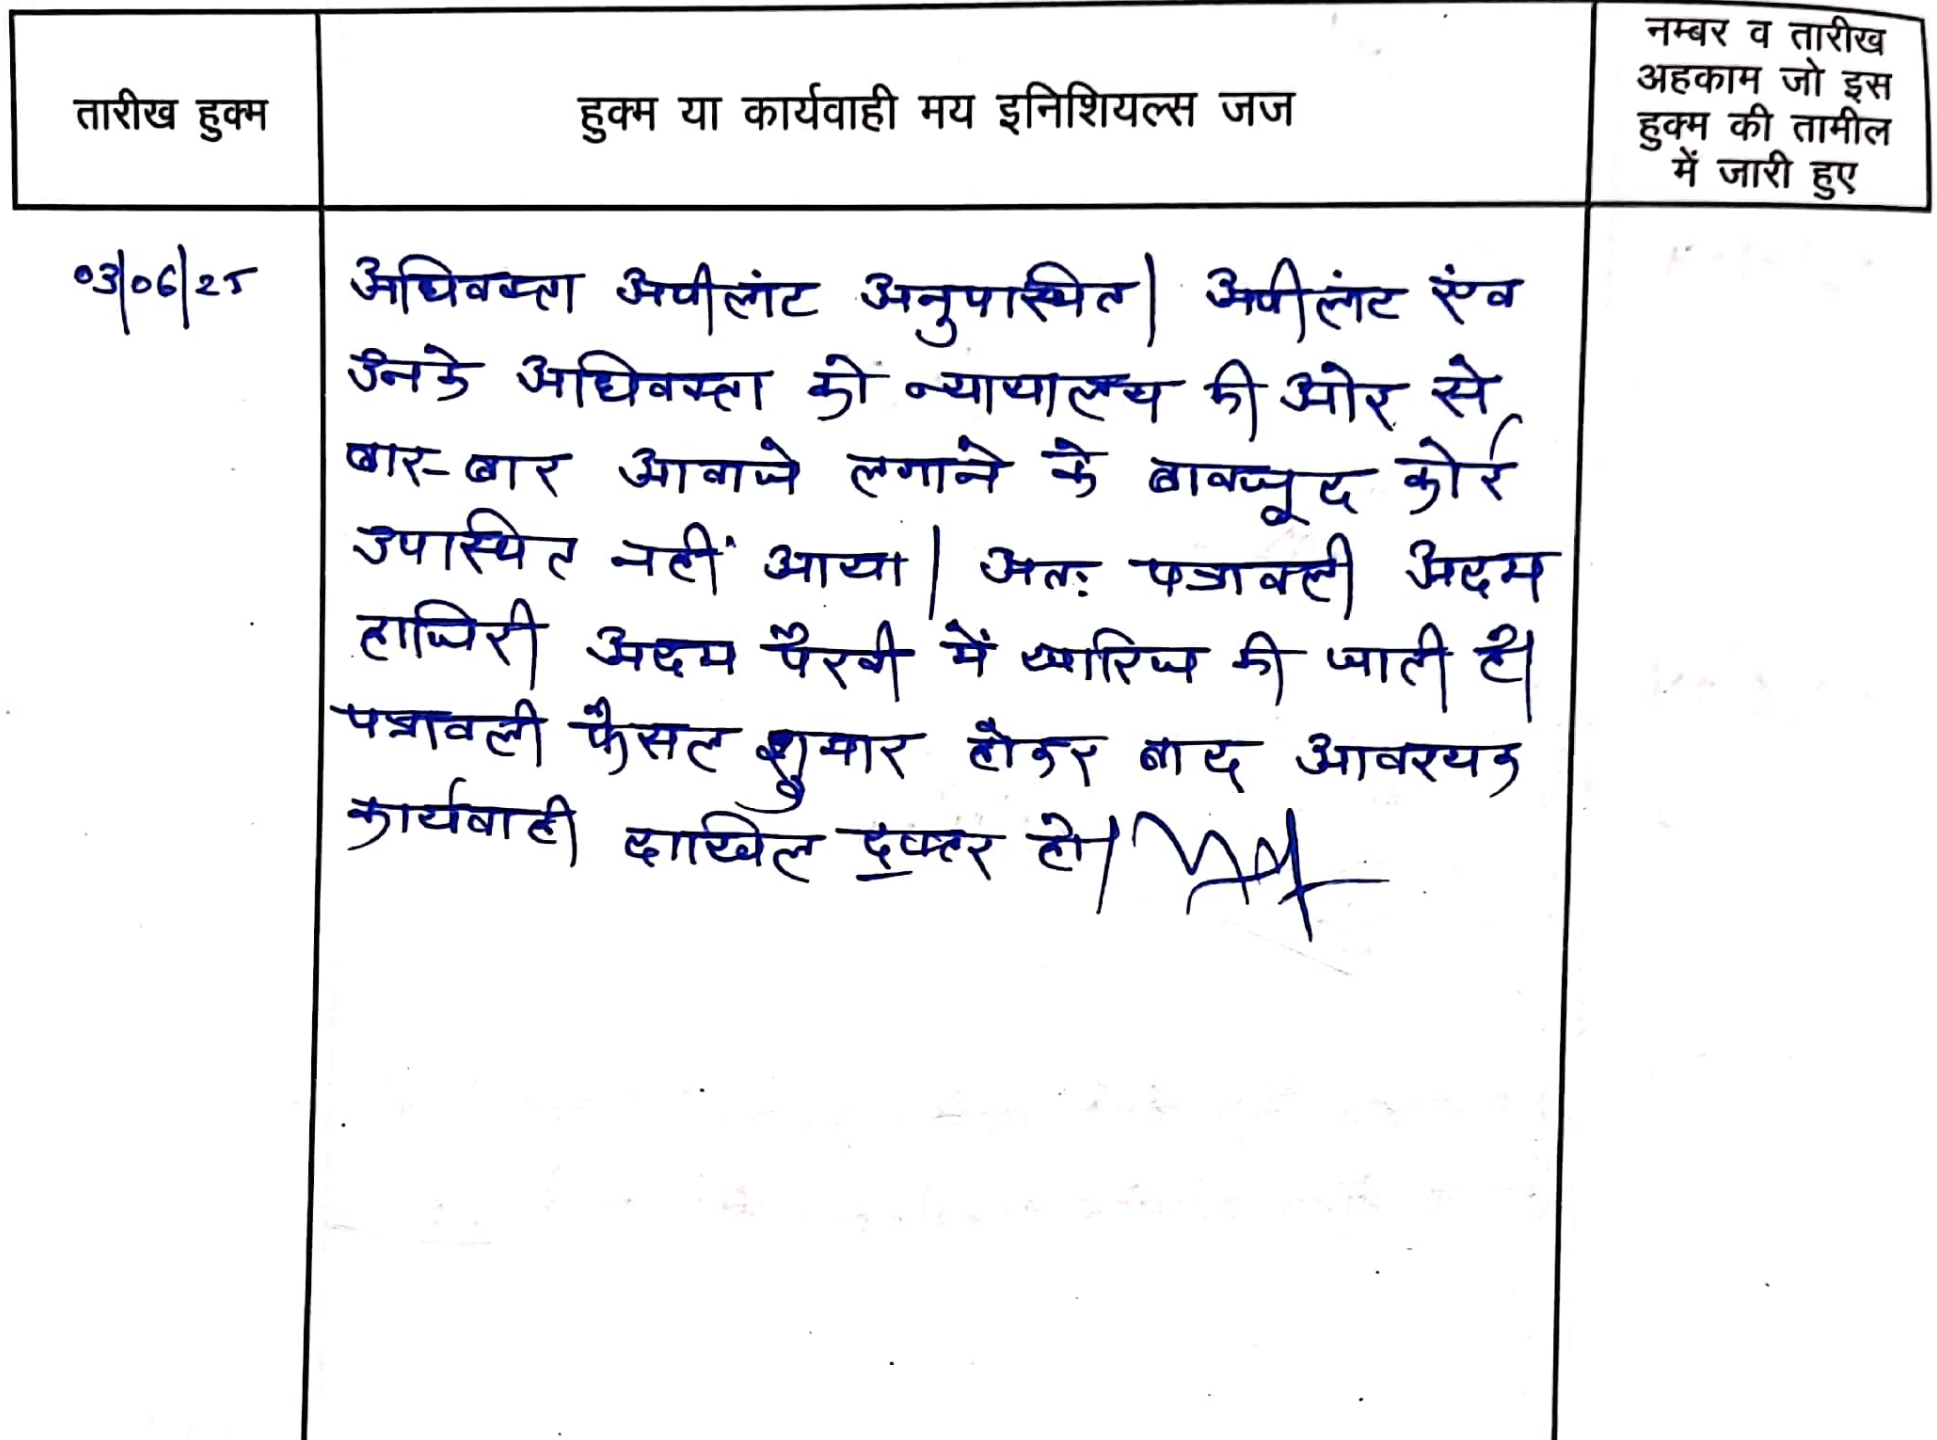 तारीख हुक्म
हुक्म या कार्यवाही मय इनिशियल्स जज
नम्बर व तारीख
अहकाम जो इस
हुक्म की तामील
में जारी हुए
03/06/25
अधिवक्ता अपीलंट अनुपस्थित। अपीलंट एंव
उनके अधिवक्ता को न्यायालय की ओर से
बार-बार आवाजे लगाने के बावजूद कोई
उपस्थित नहीं आया। अतः पत्रावली अदम
हाजिरी अदम पैरवी में खारिज की जाती है।
पत्रावली फैसल शुमार होकर बाद आवश्यक
कार्यवाही दाखिल दफ्तर हो।